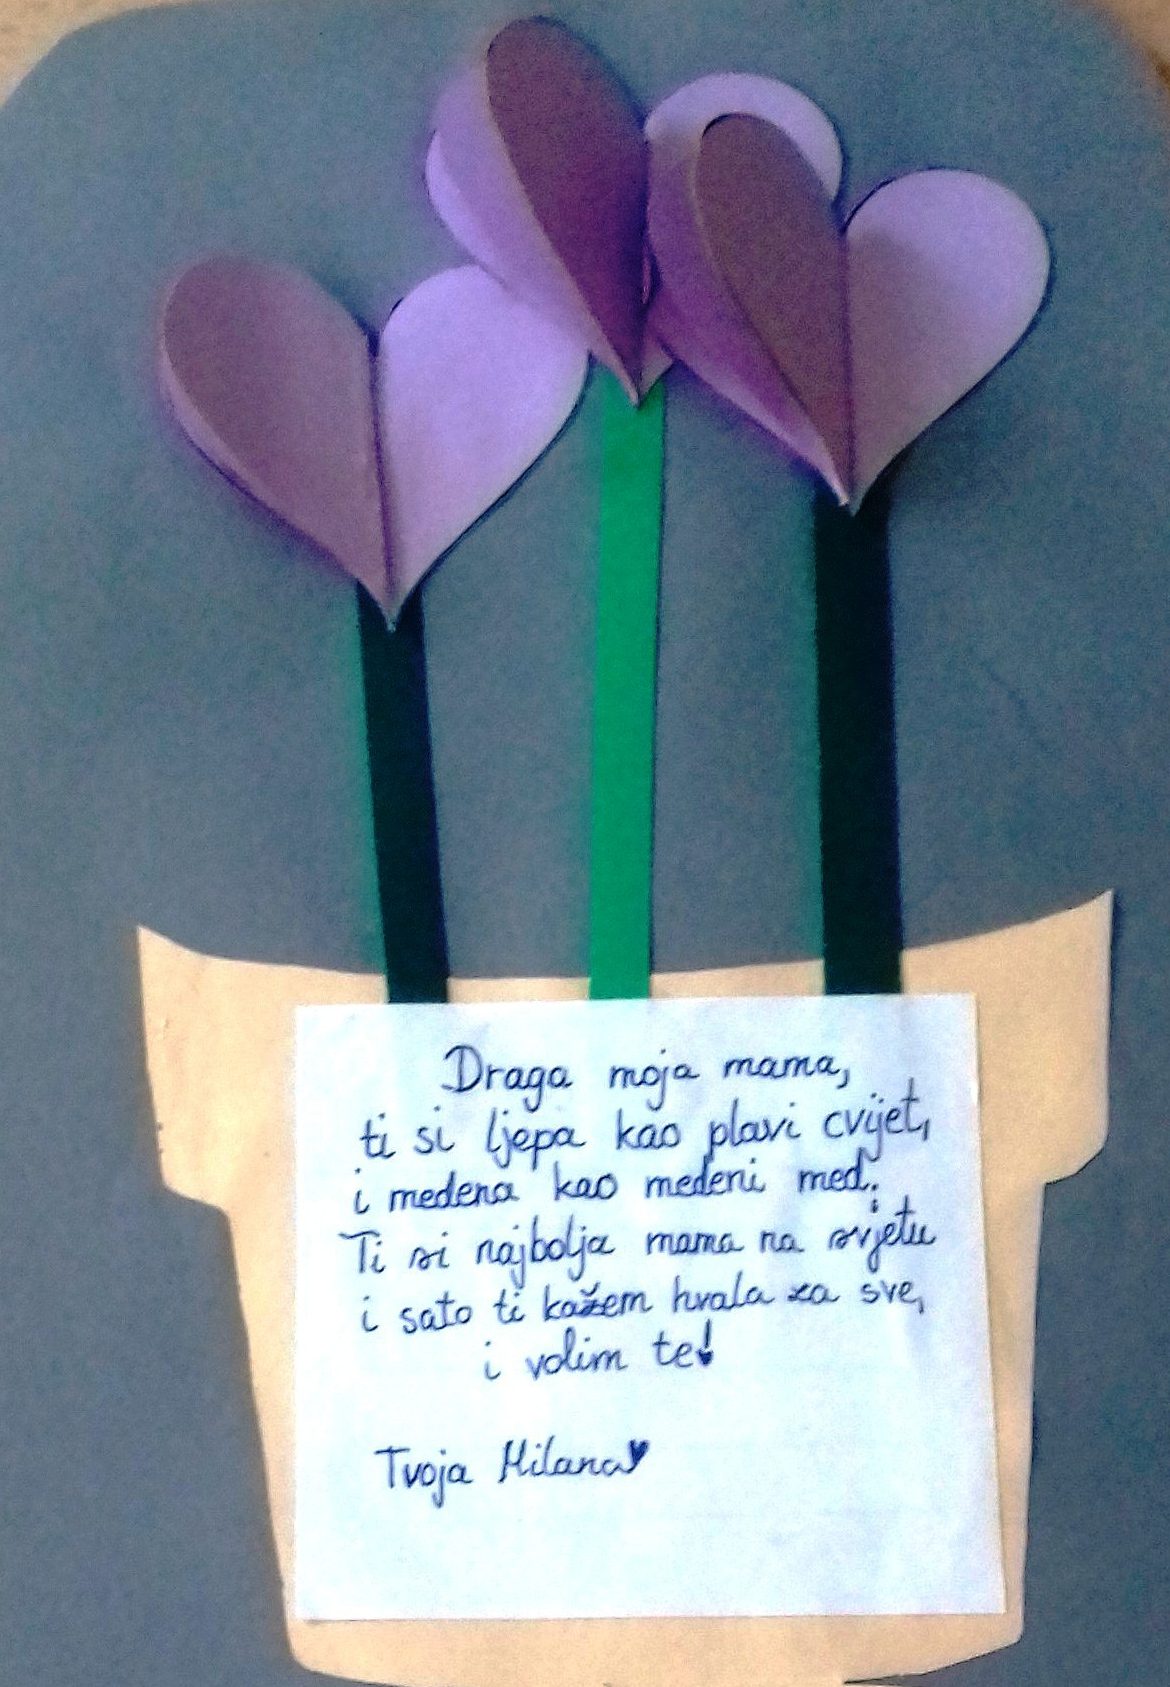 Draga moja mama,
ti si ljepa kao plavi cvijet,
i medena kao medeni med.
Ti si najbolja mama na svjetu
i sato ti kažem hvala za sve,
i volim te!
Tvoja Milana♥